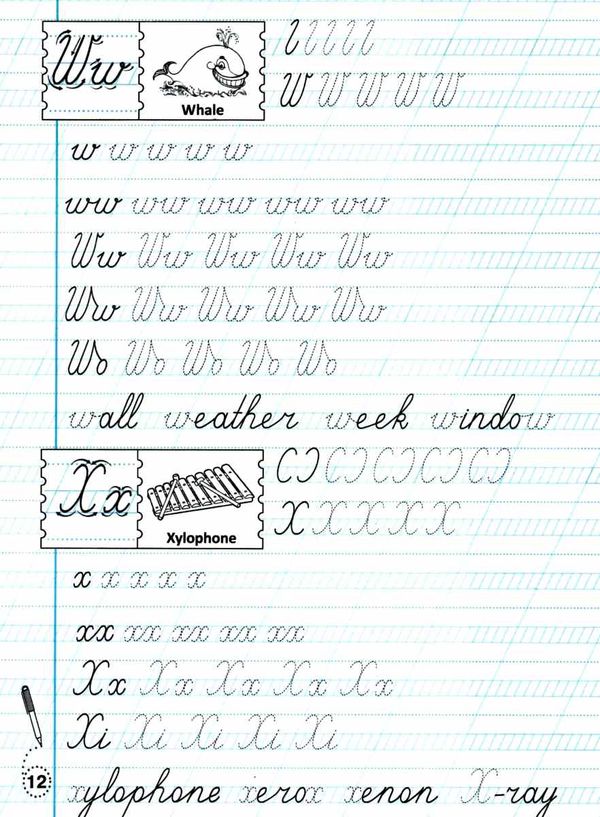 Ww
Whale
l l l l l
W W W W W
w w w w w
ww ww ww ww ww
Ww Ww Ww Ww Ww
Ww Ww Ww Ww Ww
Wo Wo Wo Wo Wo
wall weather week window
Xx
Xylophone
X X X X X
x x x x x
xx xx xx xx xx
Xx Xx Xx Xx Xx
Xi Xi Xi Xi Xi
12
xylophone xerox xenon X-ray